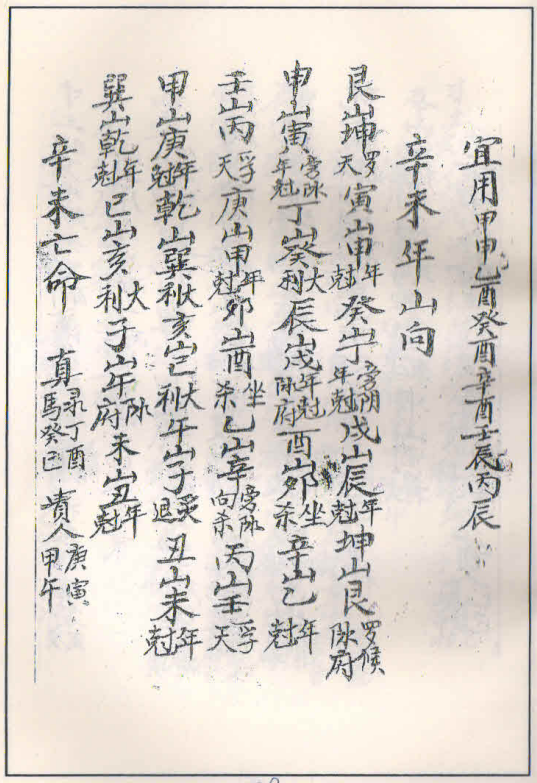 宜用甲申乙酉癸酉辛酉壬辰丙辰
辛未年山向
艮山坤罗天寅山申年尅癸山丁旁阴年尅戌山辰年尅坤山艮罗候阴府
申山寅旁阴年尅丁山癸大利辰山戌年尅阴府酉山卯坐杀辛山乙年尅
壬山丙孚天庚山甲年尅卯山酉坐杀乙山辛旁阴向杀丙山壬孚天
甲山庚年尅乾山巽大利亥山巳大利午山子灸退丑山未年尅
巽山乾年尅巳山亥大利子山午阴府未山丑年尅
辛未亡命 真录丁酉馬癸巳 貴人庚寅甲午